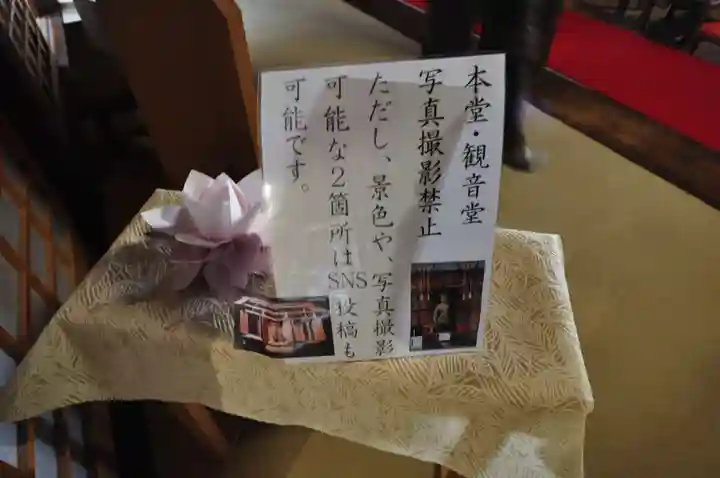 本堂・観音堂
写真撮影禁止
ただし、景色や、写真撮影
可能な2箇所はSNS投稿も
可能です。